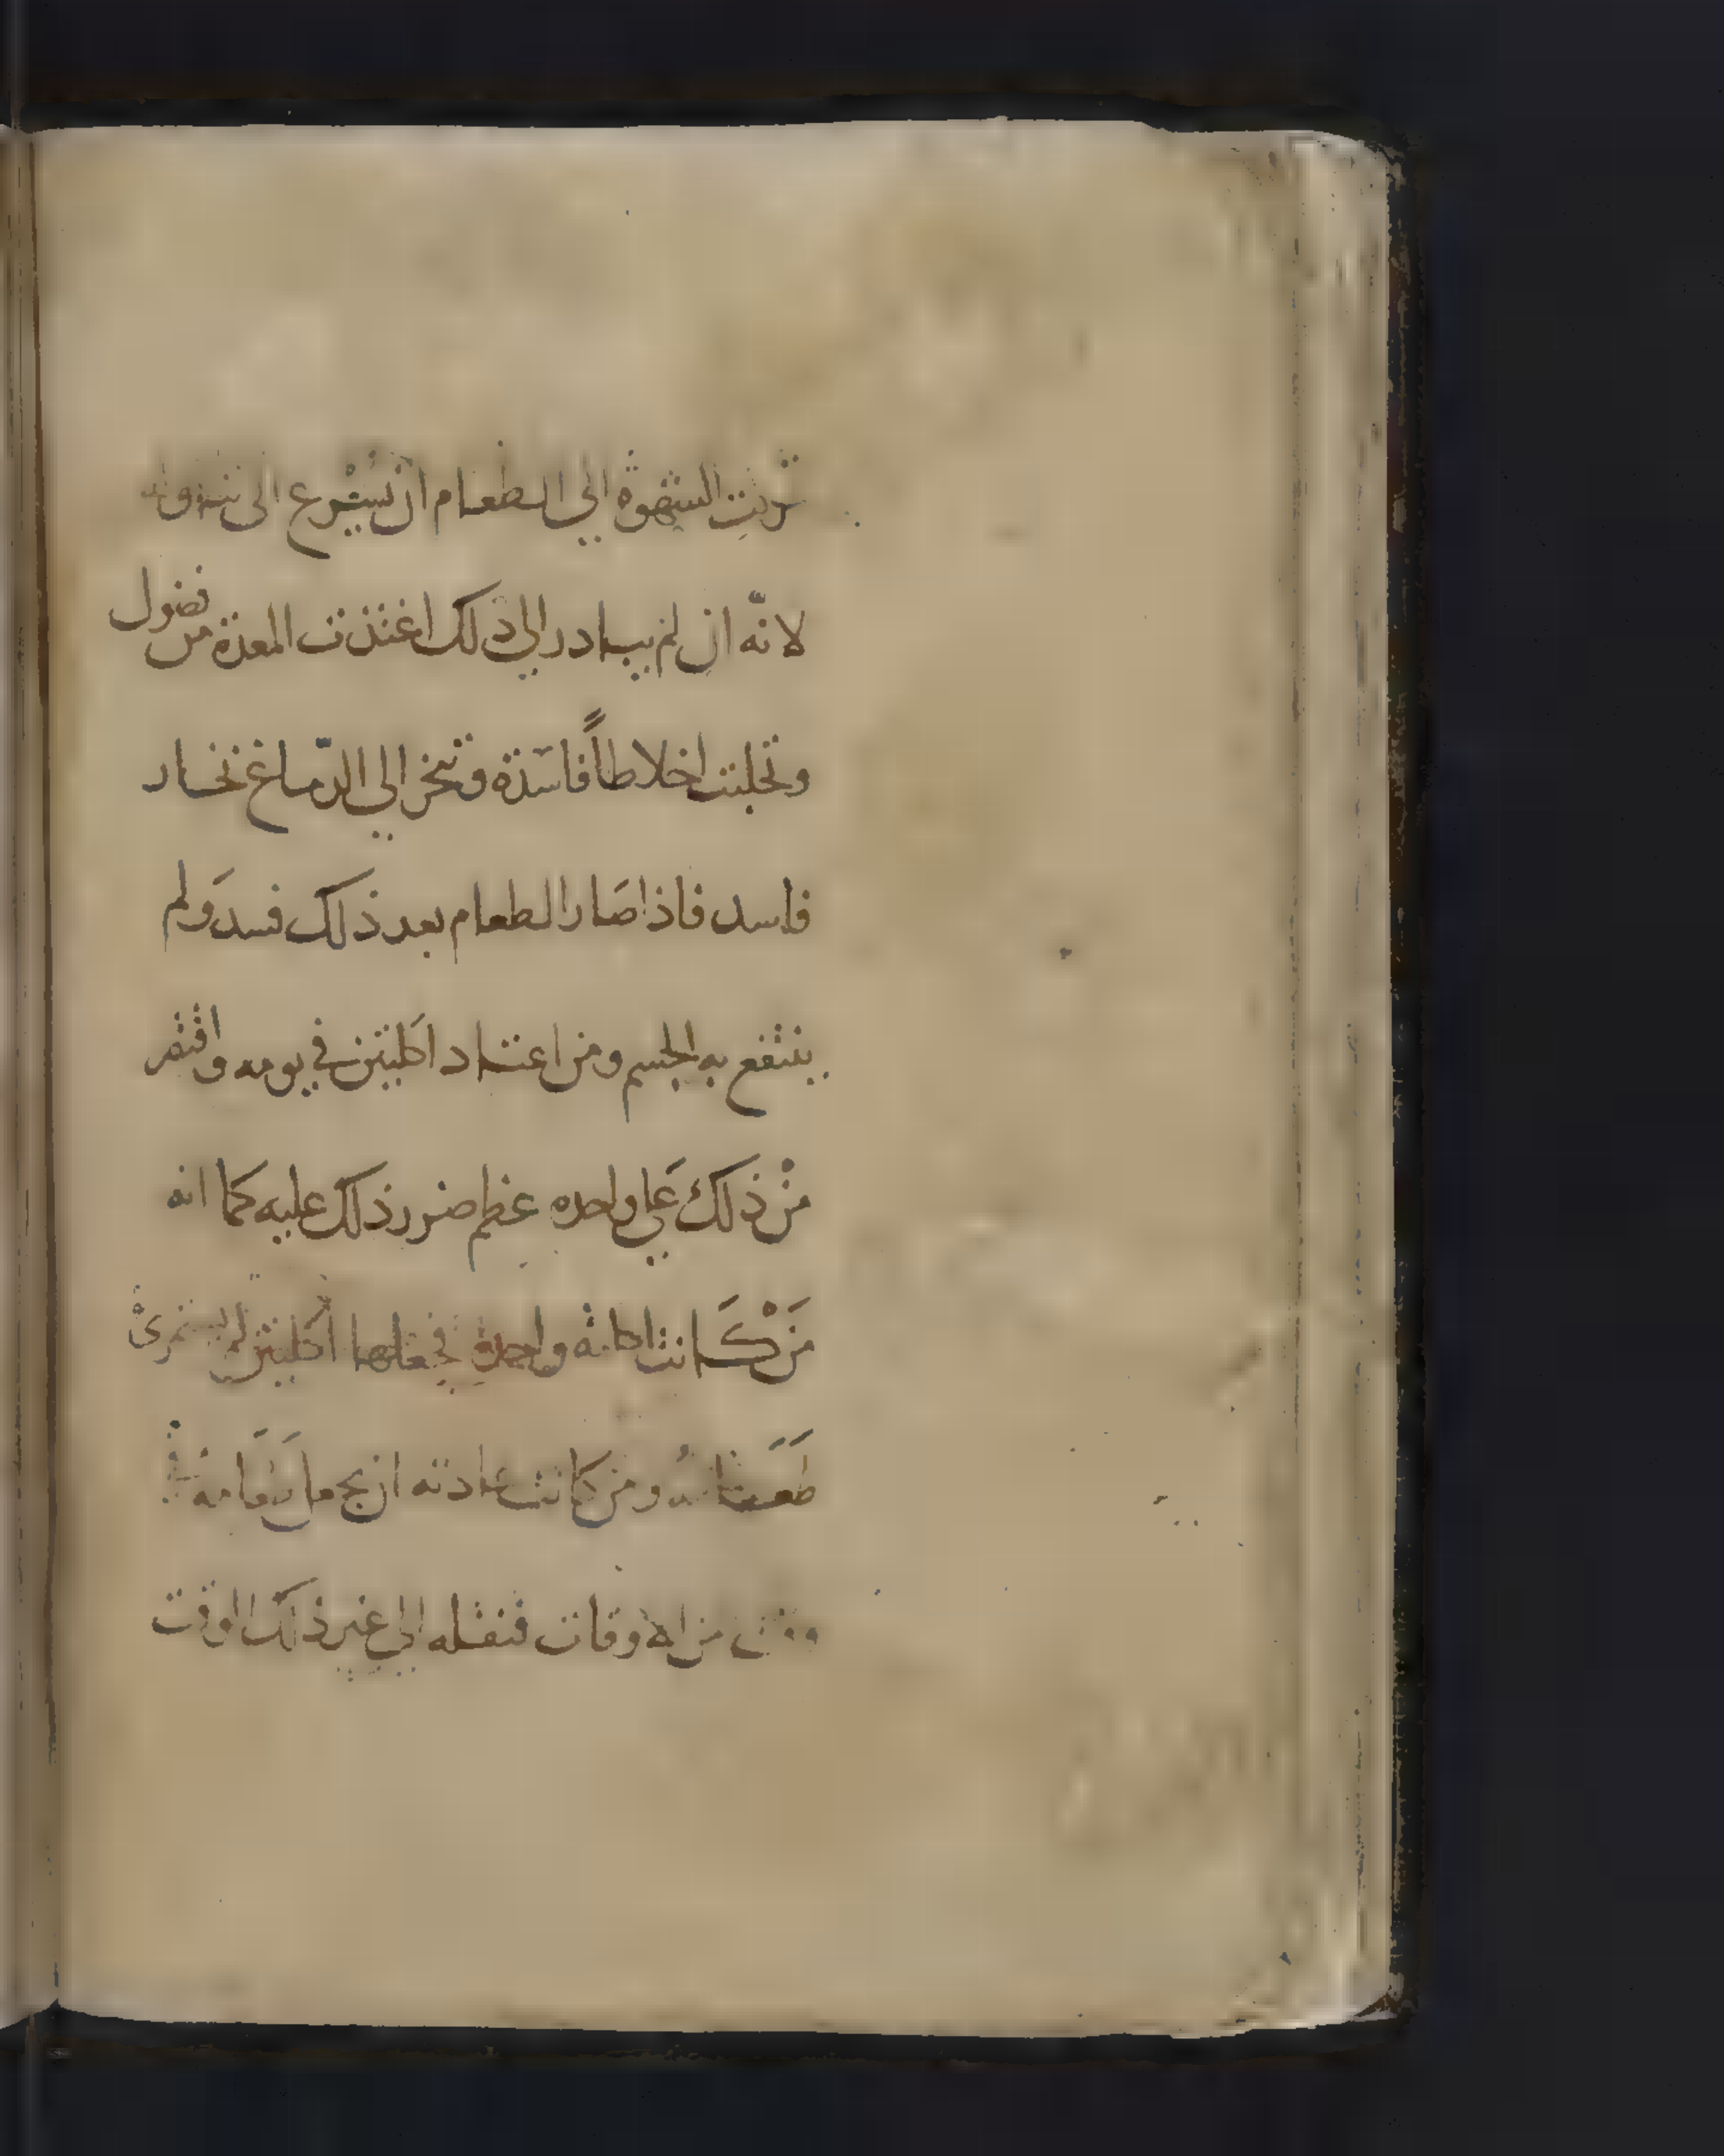 الشهوة الى الطعام ان يسرع الى
لانّه ان لم يبادر الى ذلك اغتذت المعدة من فضول
اخلاطاً فاسَدة الى الدّماغ بخار
فاسد فاذا صَار الطعام بعد ذلك فسد وَلم
ينتفع به الجسم ومن اعتاد اكلتين في يومه واقتصر
مِنْ ذلك عَلى واحده عظم ضرر ذلك عليه كما انه
مَنْ كَانت اكلته واحدة فجعلها اكلتين لم يستمرئ
طَعَامهُ ومن كانت عادته ان يجعل طَعَامهُ في
وقت من الاوقات فنقله الى غير ذلك الوقت